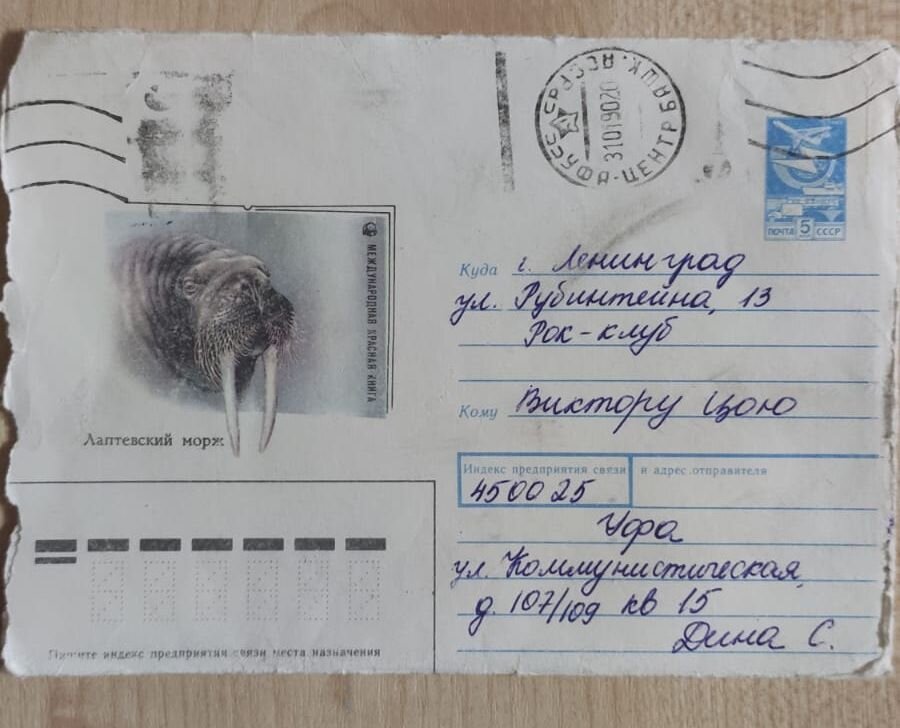 УФА-ЦЕНТР БАШК. АССР СССР
31019020
ПОЧТА 5 СССР
МЕЖДУНАРОДНАЯ КРАСНАЯ КНИГА
Лаптевский морж
Куда г. Ленинград
ул. Рубинтейна, 13
Рок-клуб
Кому Виктору Цою
Индекс предприятия связи и адрес отправителя
450025
Уфа
ул. Коммунистическая,
д. 107/109 кв 15
Дина С.
Пишите индекс предприятия связи места назначения